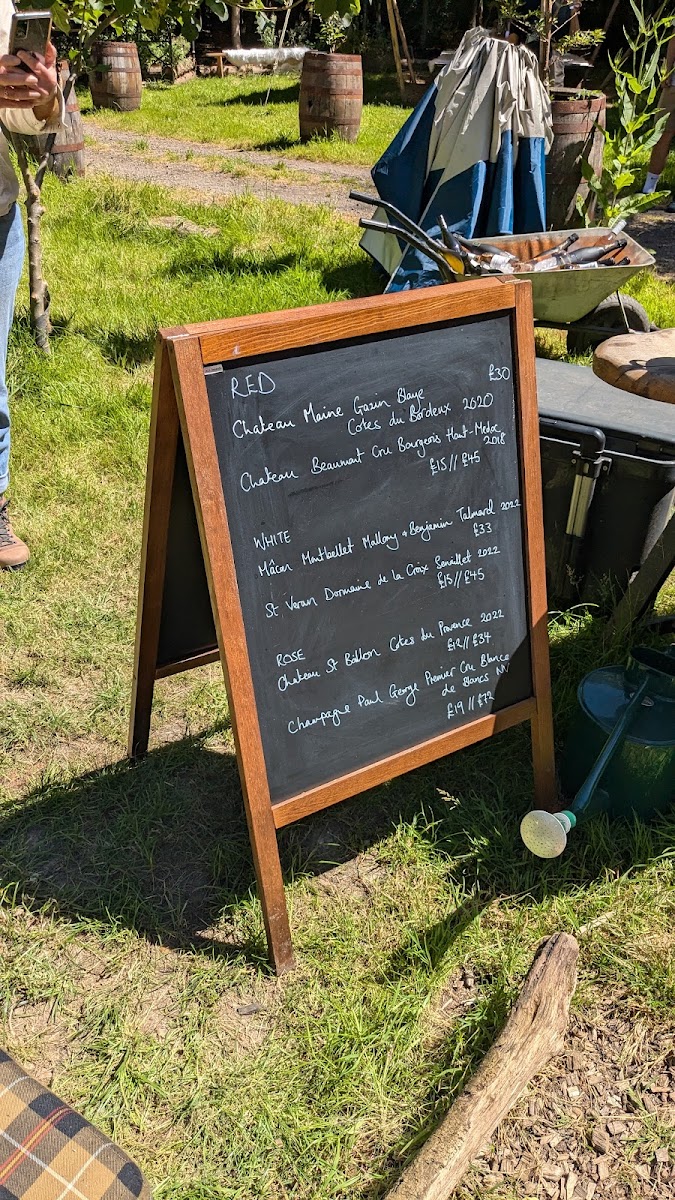 RED
£30
Chateau Maine Gazin Blaye
Cotes du Bordeux 2020
Chateau Beaumont Cru Bourgeois Haut-Medoc
2018
£15 // £45
WHITE
Mâcon Montbellet Mallory & Benjamin Talmard 2022
£33
St Veran Dormaine de la Croix Senaillet 2022
£15 // £45
ROSE
Chateau St Baillon Cotes du Provence 2022
£12 // £34
Champagne Paul Goerg Premier Cru Blanc
de Blancs NV
£19 // £72